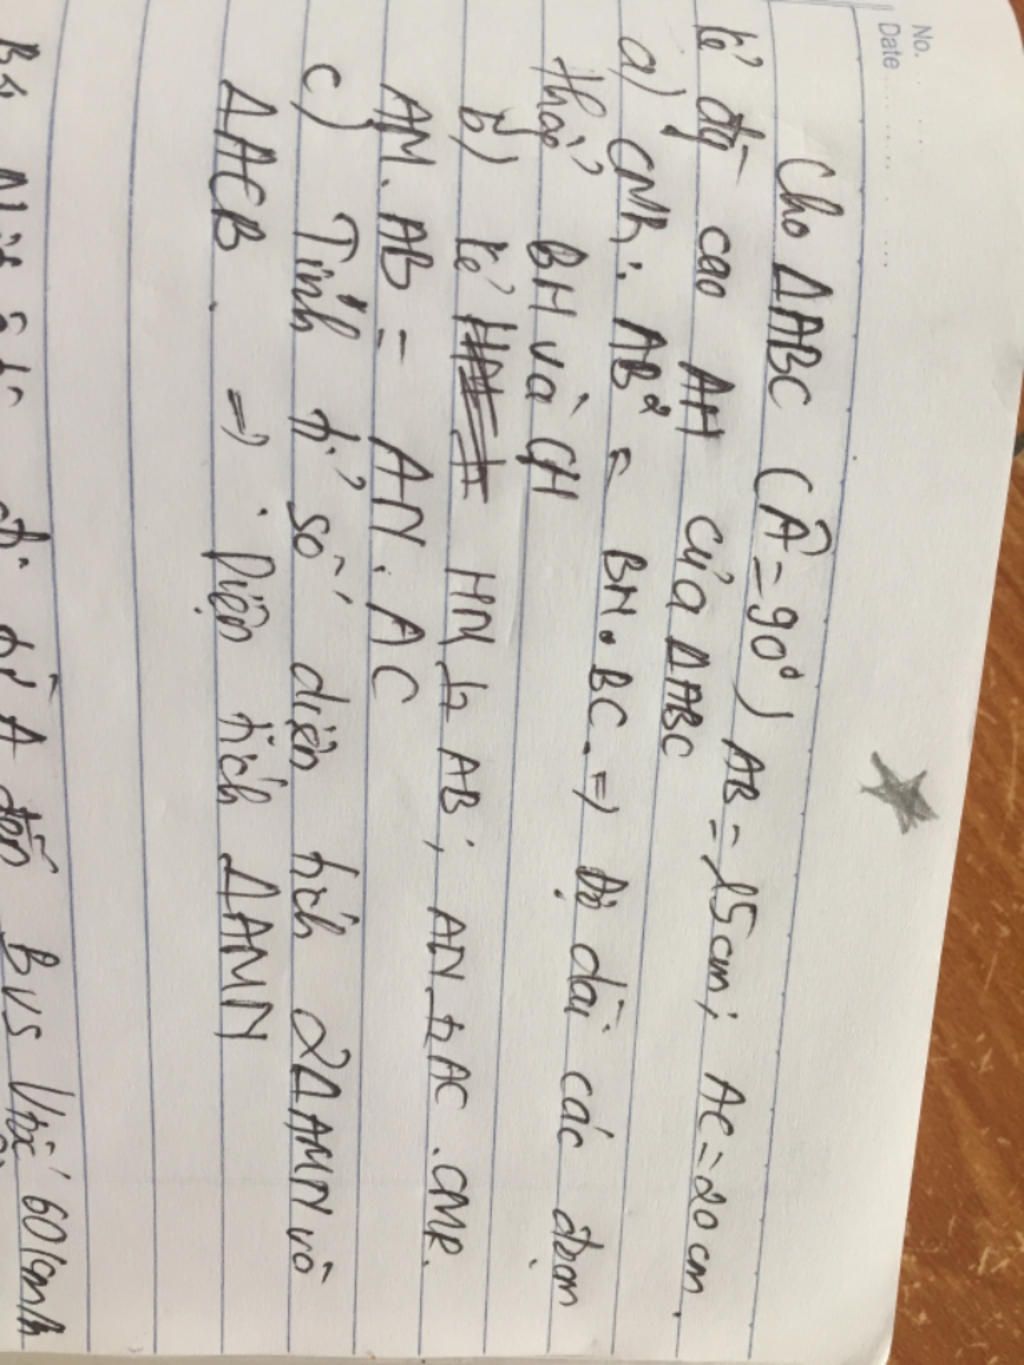 No.
Date
Cho ΔABC (Â = 90°) AB = 15cm; AC = 20cm.
kẻ đg cao AH của ΔABC
a) CMR: AB² = BH.BC. => Độ dài các đoạn
thẳng BH và CH
b) kẻ HM ⊥ AB; AN ⊥ AC. CMR.
AM. AB = AN. AC
c) Tính tỉ số diện tích 2ΔAMN và
ΔACB. => Diện tích ΔAMN
từ A đến B VS Vtốc 60km/h